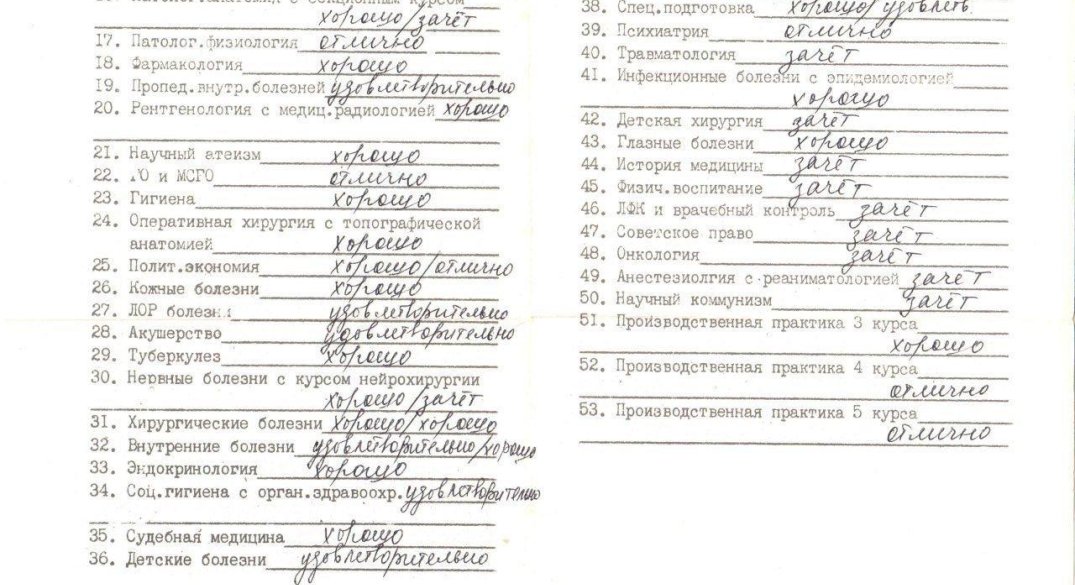 с секционным курсом
хорошо/зачёт
17. Патолог.физиология отлично
18. Фармакология хорошо
19. Пропед.внутр.болезней удовлетворительно
20. Рентгенология с медиц.радиологией хорошо
21. Научный атеизм хорошо
22. ГО и МСГО отлично
23. Гигиена хорошо
24. Оперативная хирургия с топографической
анатомией хорошо
25. Полит.экономия хорошо/отлично
26. Кожные болезни хорошо
27. ЛОР болезни удовлетворительно
28. Акушерство удовлетворительно
29. Туберкулез хорошо
30. Нервные болезни с курсом нейрохирургии
хорошо/зачёт
31. Хирургические болезни хорошо/хорошо
32. Внутренние болезни удовлетворительно/хорошо
33. Эндокринология хорошо
34. Соц.гигиена с орган.здравоохр. удовлетворительно
35. Судебная медицина хорошо
36. Детские болезни удовлетворительно
38. Спец.подготовка хорошо/удовлетв.
39. Психиатрия отлично
40. Травматология зачёт
41. Инфекционные болезни с эпидемиологией
хорошо
42. Детская хирургия зачёт
43. Глазные болезни хорошо
44. История медицины зачёт
45. Физич.воспитание зачёт
46. ЛФК и врачебный контроль зачёт
47. Советское право зачёт
48. Онкология зачёт
49. Анестезиолгия с реаниматологией зачёт
50. Научный коммунизм зачёт
51. Производственная практика 3 курса
хорошо
52. Производственная практика 4 курса
отлично
53. Производственная практика 5 курса
отлично